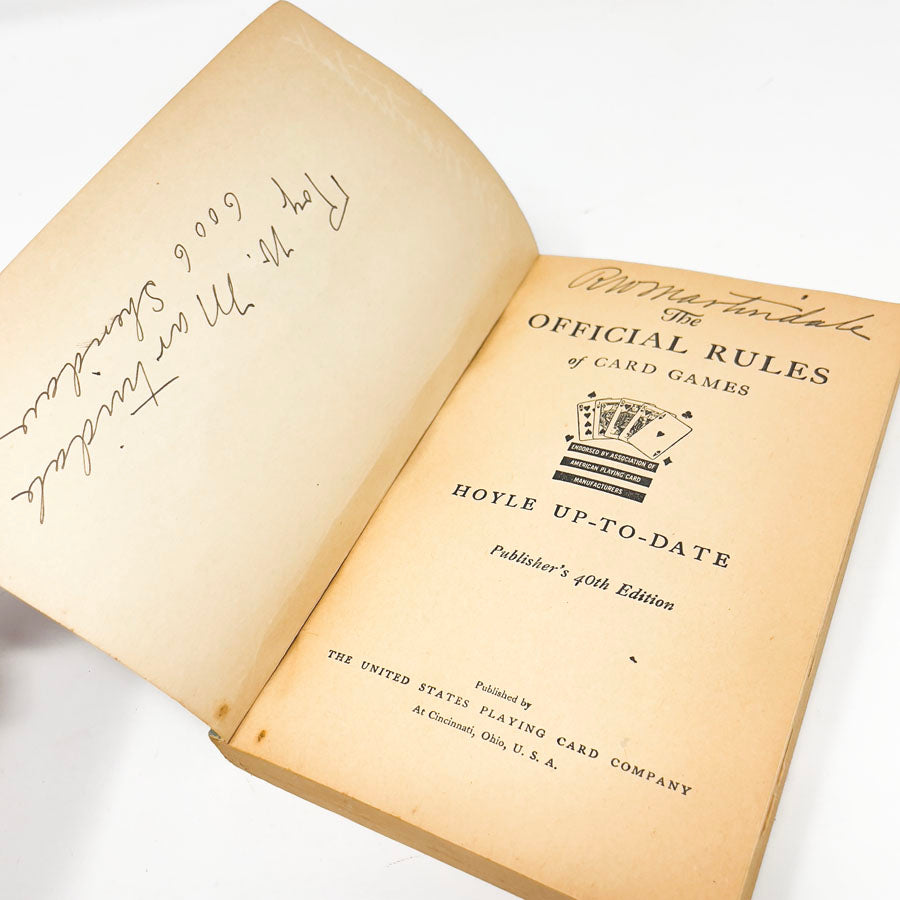 Roy W. Martindale
6006 Sheridan
RW Martindale
The
OFFICIAL RULES
of CARD GAMES
ENDORSED BY ASSOCIATION OF
AMERICAN PLAYING CARD
MANUFACTURERS
HOYLE UP-TO-DATE
Publisher's 40th Edition
Published by
THE UNITED STATES PLAYING CARD COMPANY
At Cincinnati, Ohio, U. S. A.